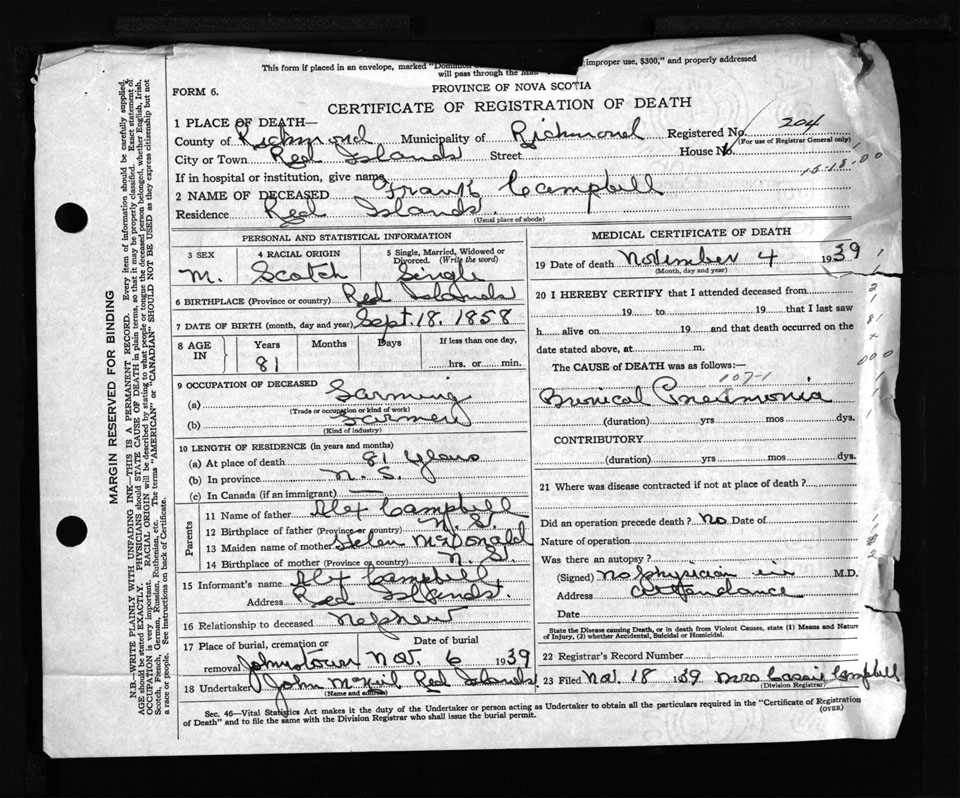 This form if placed in an envelope, marked "Dominion improper use, $300," and properly addressed
will pass through the Mail
FORM 6.
PROVINCE OF NOVA SCOTIA
CERTIFICATE OF REGISTRATION OF DEATH
1 PLACE OF DEATH—
County of Richmond Municipality of Richmond Registered No. 204
(For use of Registrar General only)
City or Town Red Islands Street House No.
If in hospital or institution, give name
2 NAME OF DECEASED Frank Campbell
Residence Red Islands.
(Usual place of abode)
PERSONAL AND STATISTICAL INFORMATION
3 SEX 4 RACIAL ORIGIN 5 Single, Married, Widowed or Divorced. (Write the word)
M. Scotch Single
6 BIRTHPLACE (Province or country) Red Islands
7 DATE OF BIRTH (month, day and year) Sept. 18. 1858
8 AGE IN Years Months Days If less than one day,
81 hrs. or min.
9 OCCUPATION OF DECEASED
(a) Farming
(Trade or occupation or kind of work)
(b) Farmer
(Kind of industry)
10 LENGTH OF RESIDENCE (in years and months)
(a) At place of death 81 years
(b) In province N. S.
(c) In Canada (if an immigrant) —
Parents
11 Name of father Alex Campbell
12 Birthplace of father (Province or country) N. S.
13 Maiden name of mother Helen McDonald
14 Birthplace of mother (Province or country) N. S.
15 Informant's name Alex Campbell
Address Red Islands.
16 Relationship to deceased Nephew
17 Place of burial, cremation or removal Johnstown Date of burial Nov. 6 1939
18 Undertaker John McNeil Red Islands
(Name and address)
MEDICAL CERTIFICATE OF DEATH
19 Date of death November 4 1939
(Month, day and year)
20 I HEREBY CERTIFY that I attended deceased from
19 to 19 that I last saw
h alive on 19 and that death occurred on the
date stated above, at m.
The CAUSE of DEATH was as follows:—
107-1
Bronical Pneumonia
(duration) yrs mos dys.
CONTRIBUTORY
(duration) yrs mos dys.
21 Where was disease contracted if not at place of death?
Did an operation precede death? no Date of
Nature of operation
Was there an autopsy?
(Signed) no physician in M.D.
Address attendance
Date
State the Disease causing Death, or in death from Violent Causes, state (1) Means and Nature
of Injury, (2) whether Accidental, Suicidal or Homicidal.
22 Registrar's Record Number
23 Filed Nov. 18 1939 Mrs Cassie Campbell
(Division Registrar)
Sec. 46—Vital Statistics Act makes it the duty of the Undertaker or person acting as Undertaker to obtain all the particulars required in the "Certificate of Registration
of Death" and to file the same with the Division Registrar who shall issue the burial permit.
(OVER)
MARGIN RESERVED FOR BINDING
N.B.—WRITE PLAINLY WITH UNFADING INK—THIS IS A PERMANENT RECORD. Every item of information should be carefully supplied.
AGE should be stated EXACTLY. PHYSICIANS should STATE CAUSE OF DEATH in plain terms, so that it may be properly classified. Exact statement of
OCCUPATION is very important. RACIAL ORIGIN will be described by stating to what people or tongue the deceased person belonged, whether English, Irish,
Scotch, French, German, Russian, Ruthenian, etc. The terms "AMERICAN" or "CANADIAN" SHOULD NOT BE USED as they express citizenship but not
a race or people. See instructions on back of Certificate.